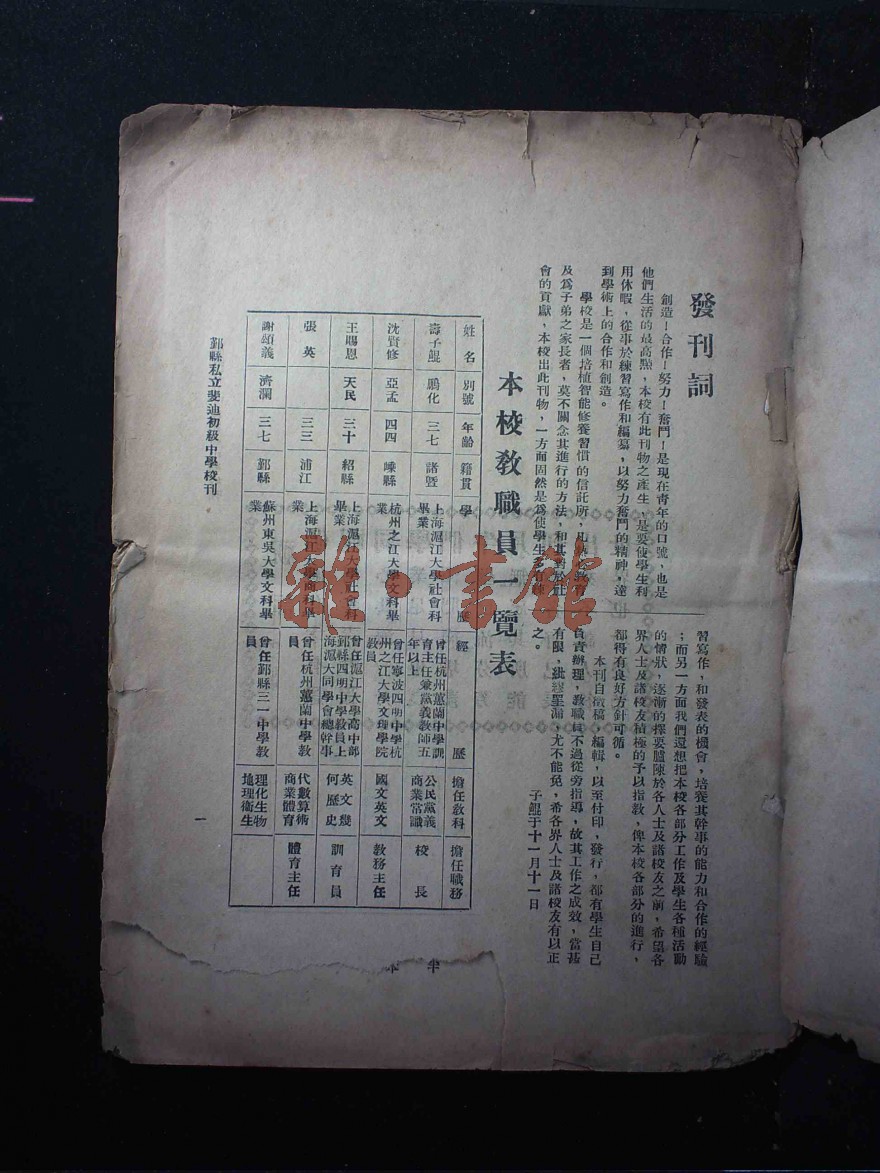 發刊詞
創造！合作！努力！奮鬥！是現在青年的口號，也是
他們生活的最高點，本校有此刊物之產生，是要使學生利
用休暇，從事於練習寫作和編纂，以努力奮鬥的精神，達
到學術上的合作和創造。
學校是一個培植智能修養習慣的信託所，凡熱心教育
及爲子弟之家長者，莫不關念其進行的方法，和其對於社
會的貢獻，本校出此刊物，一方面固然是爲使學生多有練
習寫作，和發表的機會，培養其幹事的能力和合作的經驗
；而另一方面我們還想把本校各部分工作及學生各種活動
的情狀，逐漸的擇要臚陳於各人士及諸校友之前，希望各
界人士及諸校友積極的予以指敎，俾本校各部分的進行，
都得有良好方針可循。
本刊自徵稿，編輯，以至付印，發行，都有學生自己
負責辦理，敎職員不過從旁指導，故其工作之成效，當甚
有限，紕繆罣漏，尤不能免，希各界人士及諸校友有以正
之。
子鯤于十一月十一日
本校敎職員一覽表
姓名 別號 年齡 籍貫 學歷 經歷 擔任敎科 擔任職務
壽子鯤 鵬化 三七 諸暨 上海滬江大學社會科畢業 曾任杭州蕙蘭中學訓育主任兼黨義敎師五年以上 公民黨義商業常識 校長
沈賢修 亞孟 四四 嵊縣 杭州之江大學文科畢業 曾任寧波四明中學杭州之江大學文理學院敎員 國文英文 敎務主任
王賜恩 天民 三十 紹縣 上海滬江大學社會科畢業 曾任滬江大學高中部鄞縣四明中學敎員上海滬大同學會總幹事 英文幾何歷史 訓育員
張英 三三 浦江 上海滬江大學商科畢業 曾任杭州蕙蘭中學敎員 代數算術商業體育 體育主任
謝頌義 濟瀾 三七 鄞縣 蘇州東吳大學文科畢業 曾任鄞縣三一中學敎員 理化生物地理衛生
鄞縣私立斐迪初級中學校刊
一
半
本
雜·書館